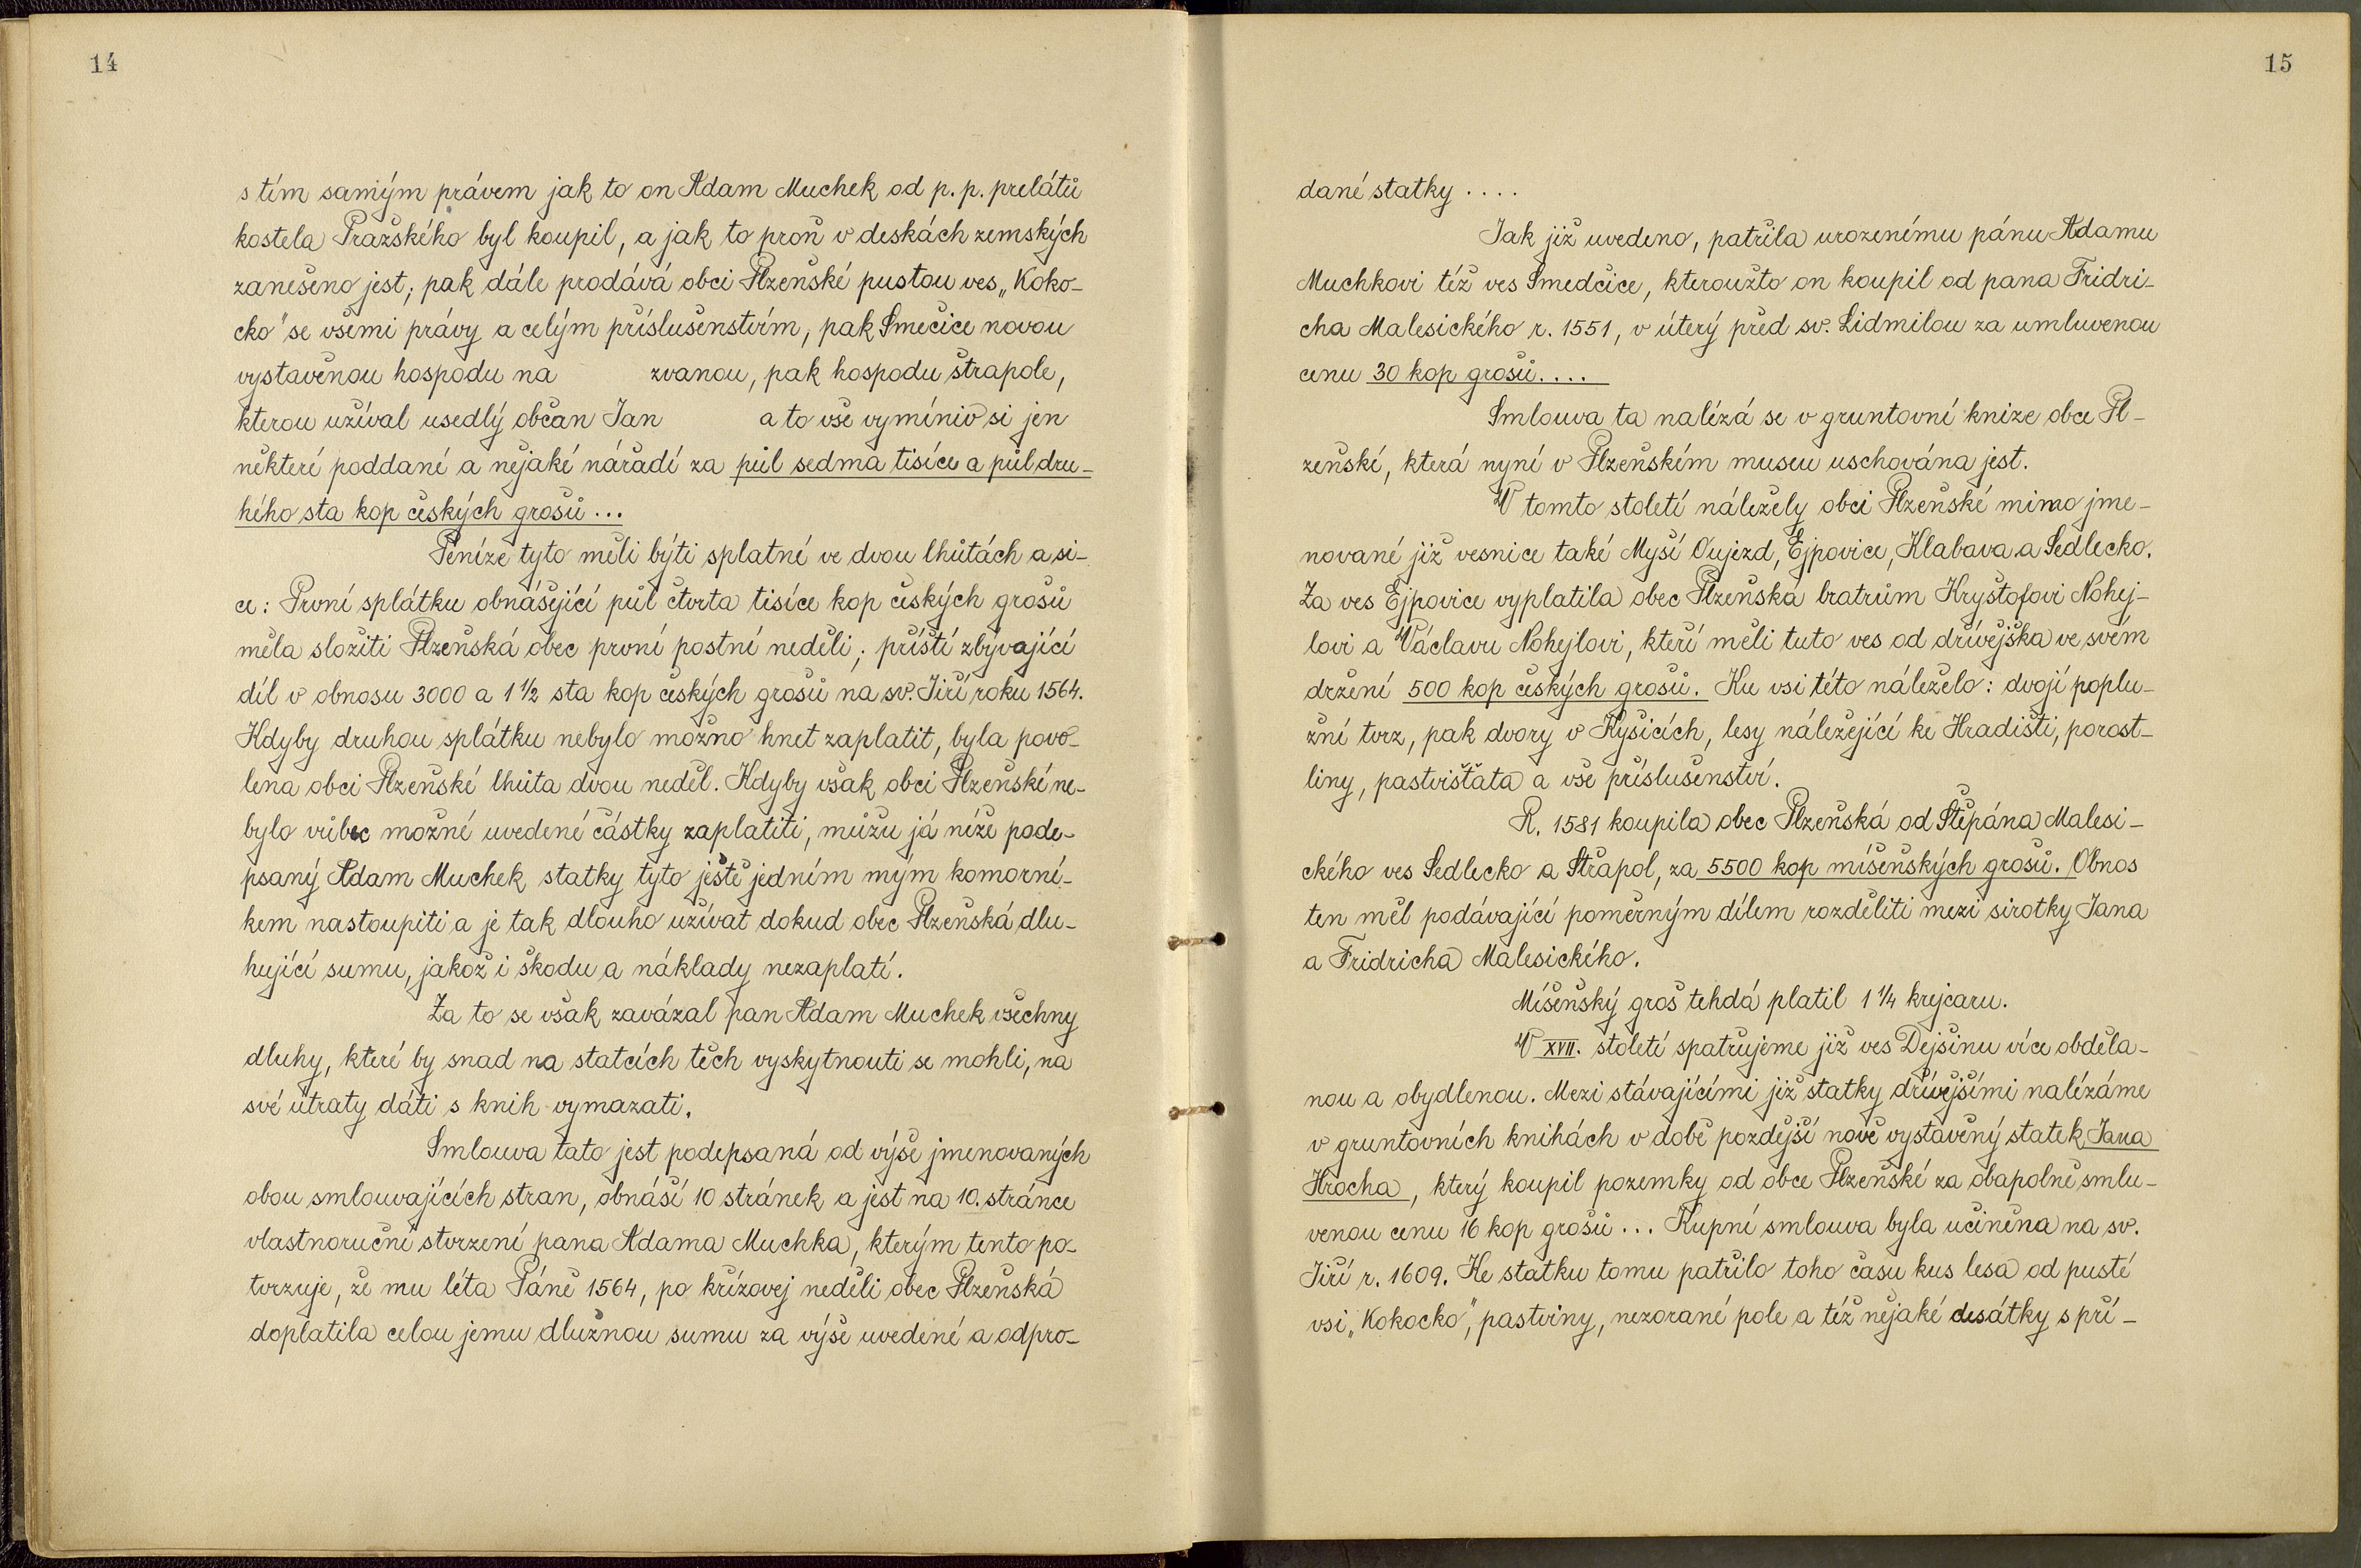 14
s tím samým právem jak to on Adam Muchek od p. p. prelátů
kostela Pražského byl koupil, a jak to proň v deskách zemských
zanešeno jest; pak dále prodává obci Plzeňské pustou ves „Koko-
cko" se všemi právy a celým příslušenstvím, pak Smečice novou
vystavěnou hospodu na zvanou, pak hospodu štrapole,
kterou užíval usedlý občan Jan a to vše vymíniv si jen
některé poddané a nějaké nářadí za půl sedma tisíce a půl dru-
hého sta kop českých grošů...
Peníze tyto měli býti splatné ve dvou lhůtách a si-
ce: První splátku obnášející půl čtvrta tisíce kop českých grošů
měla složiti Plzeňská obec první postní neděli; příští zbývající
díl v obnosu 3000 a 1 ½ sta kop českých grošů na sv. Jiří roku 1564.
Kdyby druhou splátku nebylo možno hnet zaplatit, byla povo-
lena obci Plzeňské lhůta dvou neděl. Kdyby však obci Plzeňské ne-
bylo vůbec možné uvedené částky zaplatiti, můžu já níže pode-
psaný Adam Muchek statky tyto ještě jedním mým komorní-
kem nastoupiti a je tak dlouho užívat dokud obec Plzeňská dlu-
hující sumu, jakož i škodu a náklady nezaplatí.
Za to se však zavázal pan Adam Muchek všechny
dluhy, které by snad na statcích těch vyskytnouti se mohli, na
své útraty dáti s knih vymazati.
Smlouva tato jest podepsaná od výše jmenovaných
obou smlouvajících stran, obnáší 10 stránek a jest na 10. stránce
vlastnoruční stvrzení pana Adama Muchka, kterým tento po-
tvrzuje, že mu léta Páně 1564, po křížovej neděli obec Plzeňská
doplatila celou jemu dlužnou sumu za výše uvedené a odpro-
15
dané statky ....
Jak již uvedeno, patřila urozenému pánu Adamu
Muchkovi též ves Smedčice, kteroužto on koupil od pana Fridri-
cha Malesického r. 1551, v úterý před sv. Lidmilou za umluvenou
cenu 30 kop grošů....
Smlouva ta nalézá se v gruntovní knize obce Pl-
zeňské, která nyní v Plzeňském museu uschována jest.
V tomto století náležely obci Plzeňské mimo jme-
nované již vesnice také Myší Oujezd, Ejpovice, Klabava a Sedlecko.
Za ves Ejpovice vyplatila obec Plzeňská bratrům Kryštofovi Nohej-
lovi a Václavu Nohejlovi, kteří měli tuto ves od dřívějška ve svém
držení 500 kop českých grošů. Ku vsi této náleželo: dvojí poplu-
žní tvrz, pak dvory v Kyšicích, lesy náležející ke Hradišti, porost-
liny, pastvišťata a vše příslušenství.
R. 1581 koupila obec Plzeňská od Štěpána Malesi-
ckého ves Sedlecko a Střapol, za 5500 kop míšeňských grošů. Obnos
ten měl podávající poměrným dílem rozděliti mezi sirotky Jana
a Fridricha Malesického.
Míšeňský groš tehdá platil 1 ¼ krejcaru.
V XVII. století spatřujeme již ves Dejšinu více obděla-
nou a obydlenou. Mezi stávajícími již statky dřívějšími nalézáme
v gruntovních knihách v době pozdější nově vystavěný statek Jana
Hrocha, který koupil pozemky od obce Plzeňské za obapolně smlu-
venou cenu 16 kop grošů... Kupní smlouva byla učiněna na sv.
Jiří r. 1609. Ke statku tomu patřilo toho času kus lesa od pusté
vsi „Kokocko", pastviny, nezorané pole a též nějaké desátky s pří-